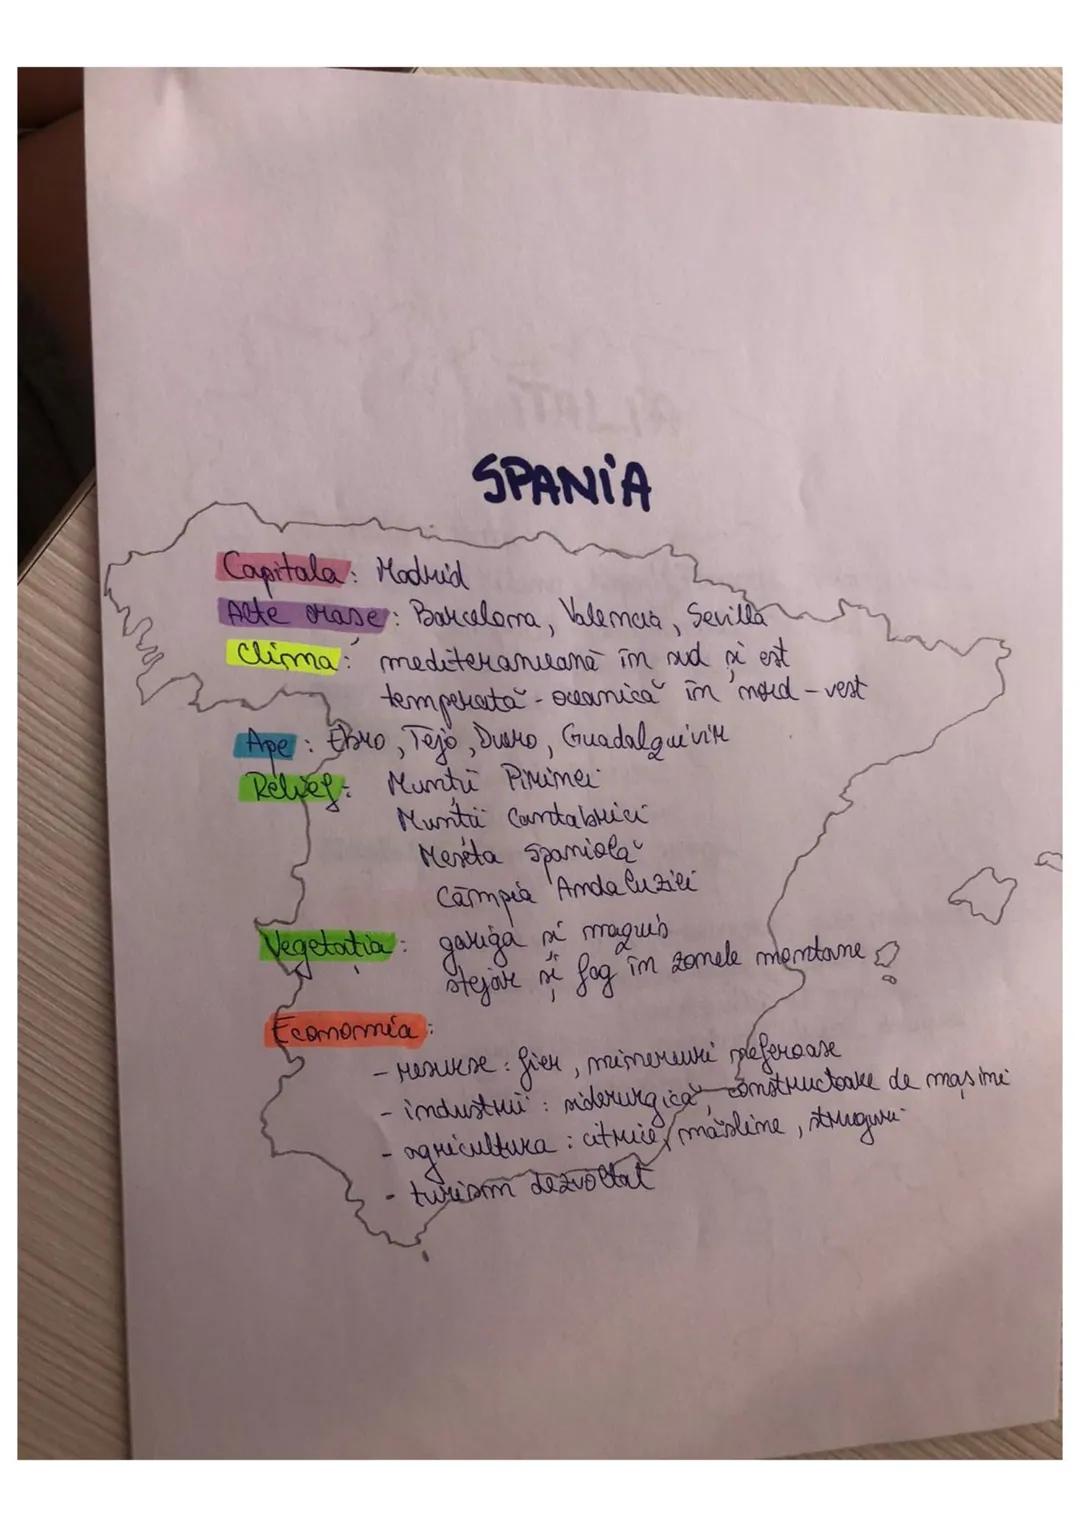 SPANIA
Capitala: Madrid
Alte orașe: Barcelona, Valencia, Sevilla
Clima: mediteraneană în sud și est
temperată - oceanică în nord - vest
Ape: Ebro, Tejo, Duero, Guadalquivir
Relief: Munții Pirinei
Munții Cantabrici
Meseta Spaniolă
Câmpia Andaluziei
Vegetația: gariga și maquis
stejar și fag în zonele montane
Economia:
- resurse: fier, minereuri neferoase
- industrii: siderurgică, constructoare de mașini
- agricultura: citrice, măsline, struguri
- turism dezvoltat